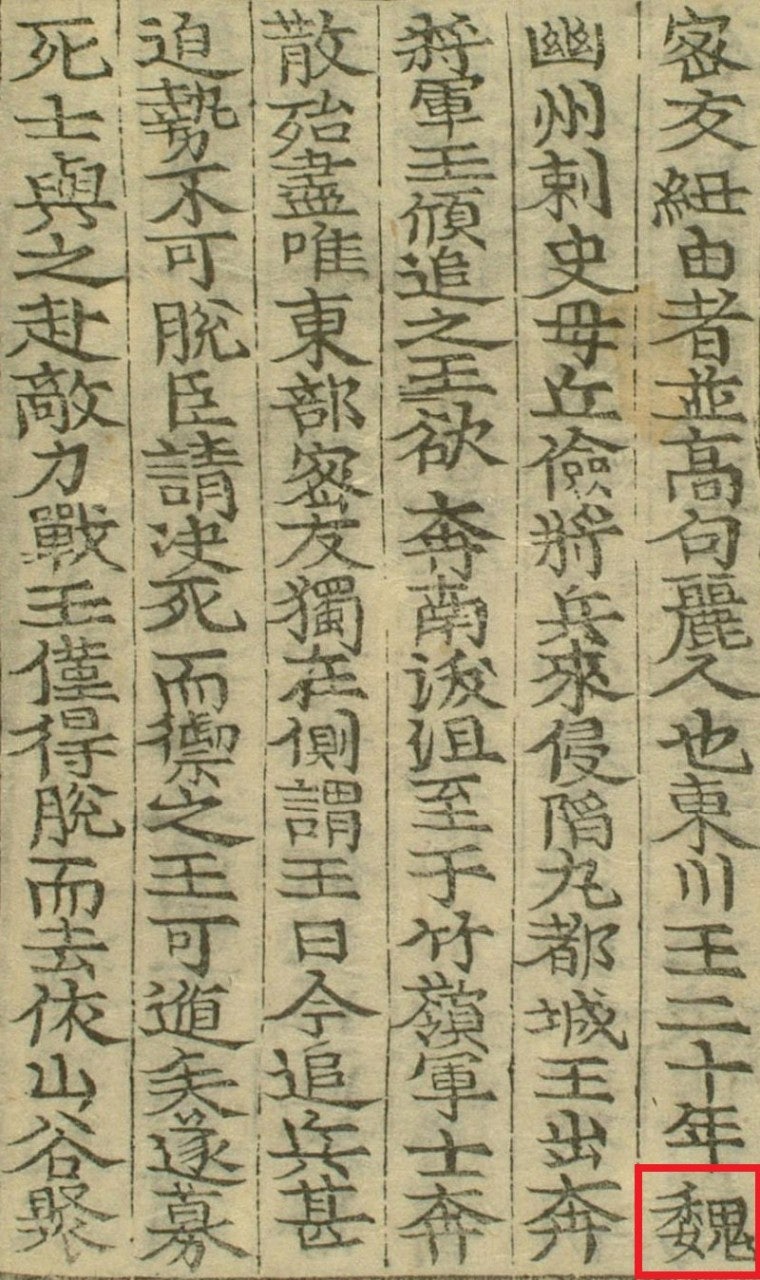 密友紐由者並髙句麗人也東川王二十年魏
幽州刺史毋丘儉將兵來侵陷丸都城王出奔
將軍王頎追之王欲奔南沃沮至于竹嶺軍士奔
散殆盡唯東部密友獨在側謂王曰今追兵甚
迫勢不可脫臣請决死而禦之王可遁矣遂募
死士與之赴敵力戰王僅得脫而去依山谷聚